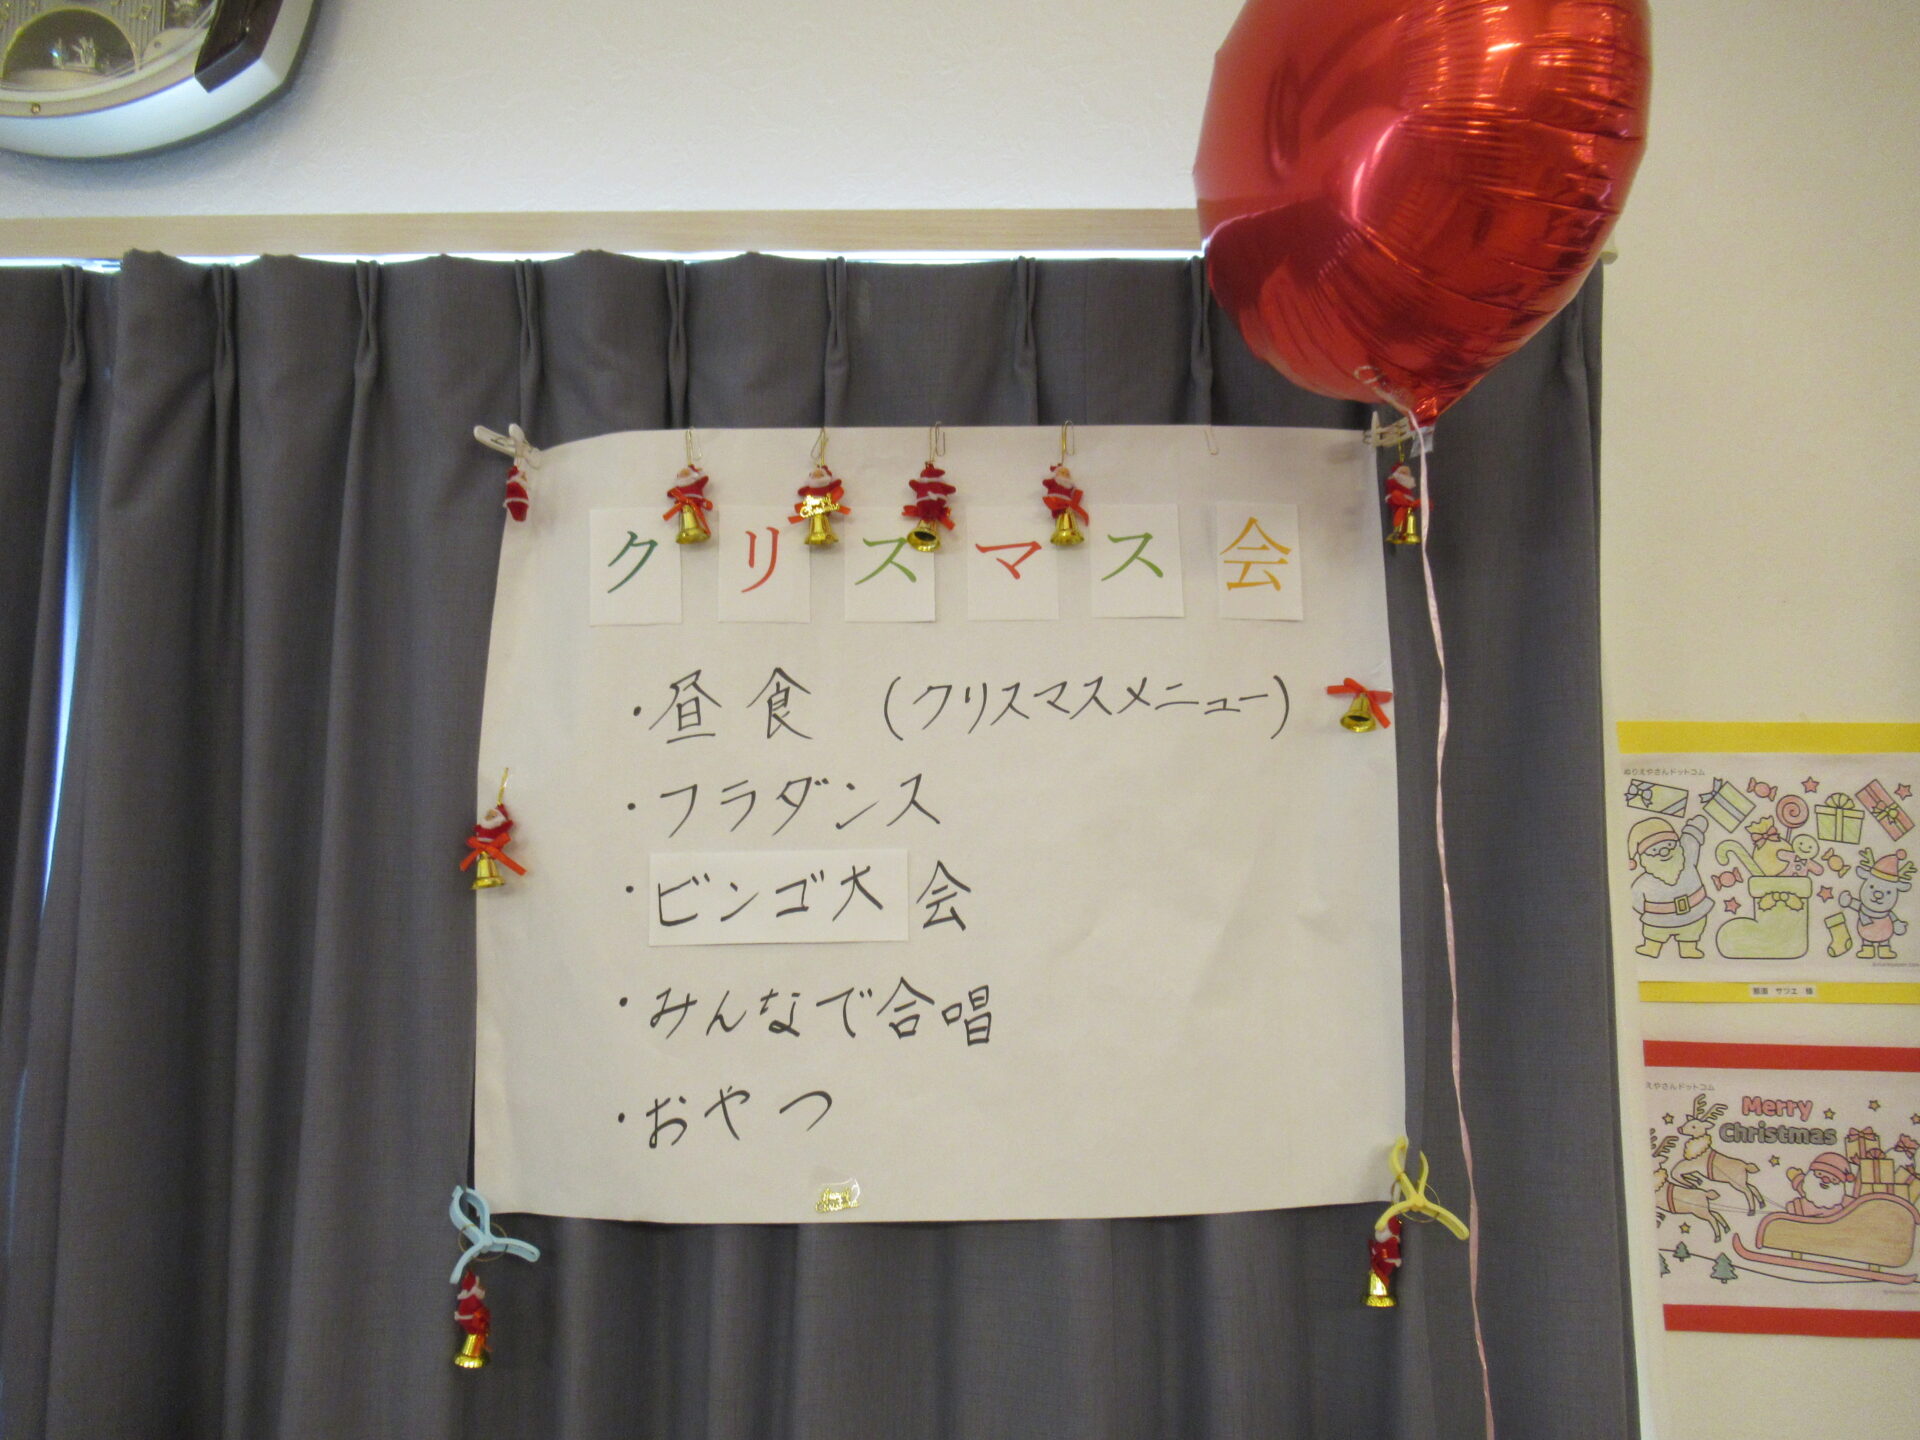 クリスマス会
・昼食 (クリスマスメニュー)
・フラダンス
・ビンゴ大会
・みんなで合唱
・おやつ
Merry Christmas
ぬりえやさんドットコム
サツエ 様
えやさんドットコム
Merry
Christmas